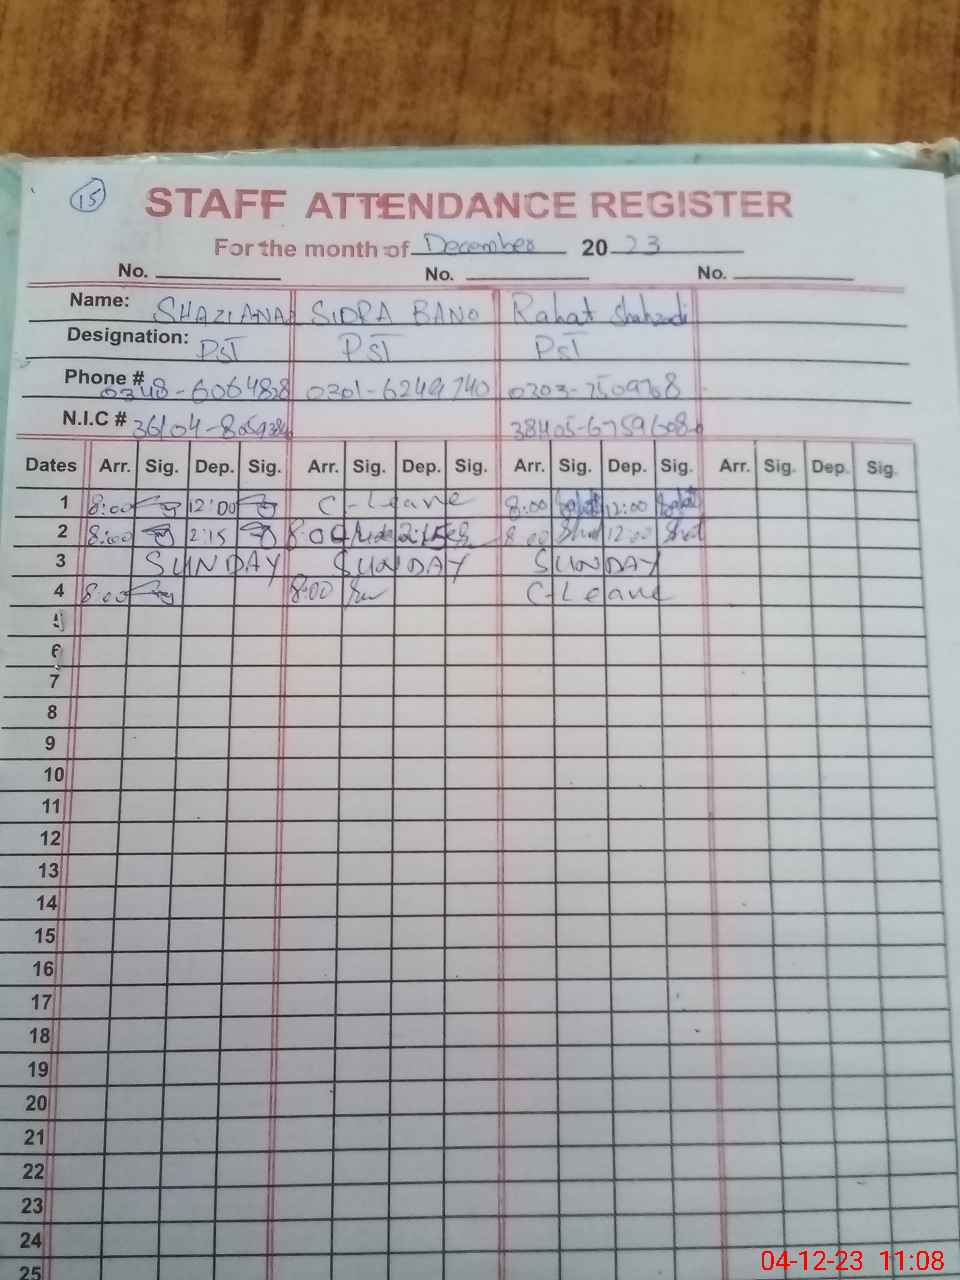 15
STAFF ATTENDANCE REGISTER
For the month of December 20 23
No. No. No.
Name: SHAZIANA SIDRA BANO Rahat Shahzadi
Designation: PST PST PST
Phone # 0348-6064828 0301-6249740
N.I.C #
Dates Arr. Sig. Dep. Sig. Arr. Sig. Dep. Sig. Arr. Sig. Dep. Sig. Arr. Sig. Dep. Sig.
1 8:00 12:00 C-Leave 8:00 12:00
2 8:00 2:15 8:00 2:15 8:00 12:00
3 SUNDAY SUNDAY SUNDAY
4 8:00 8:00 C-Leave
5
6
7
8
9
10
11
12
13
14
15
16
17
18
19
20
21
22
23
24
25
04-12-23 11:08